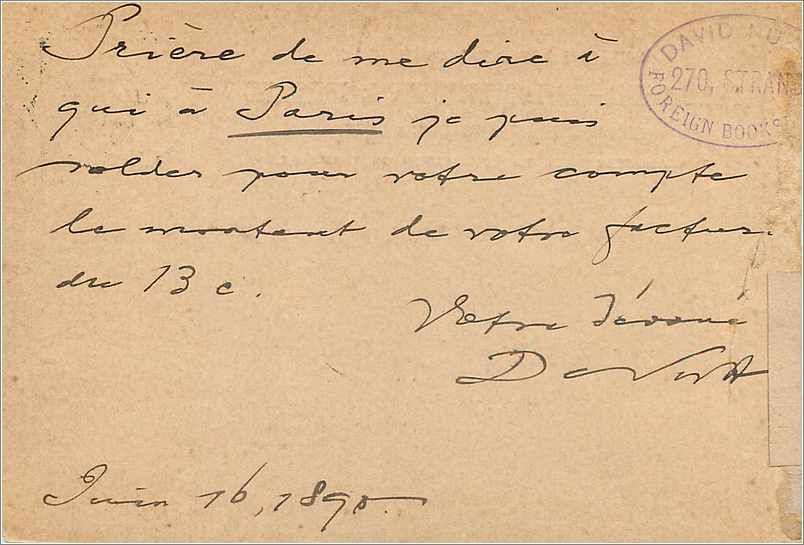 Prière de me dire à
qui à Paris je puis
solder pour votre compte
le montant de votre factur
du 13 c.
Votre dévoué
D Nutt
Juin 16, 1890
DAVID NU
270, STRAND
FOREIGN BOOKS